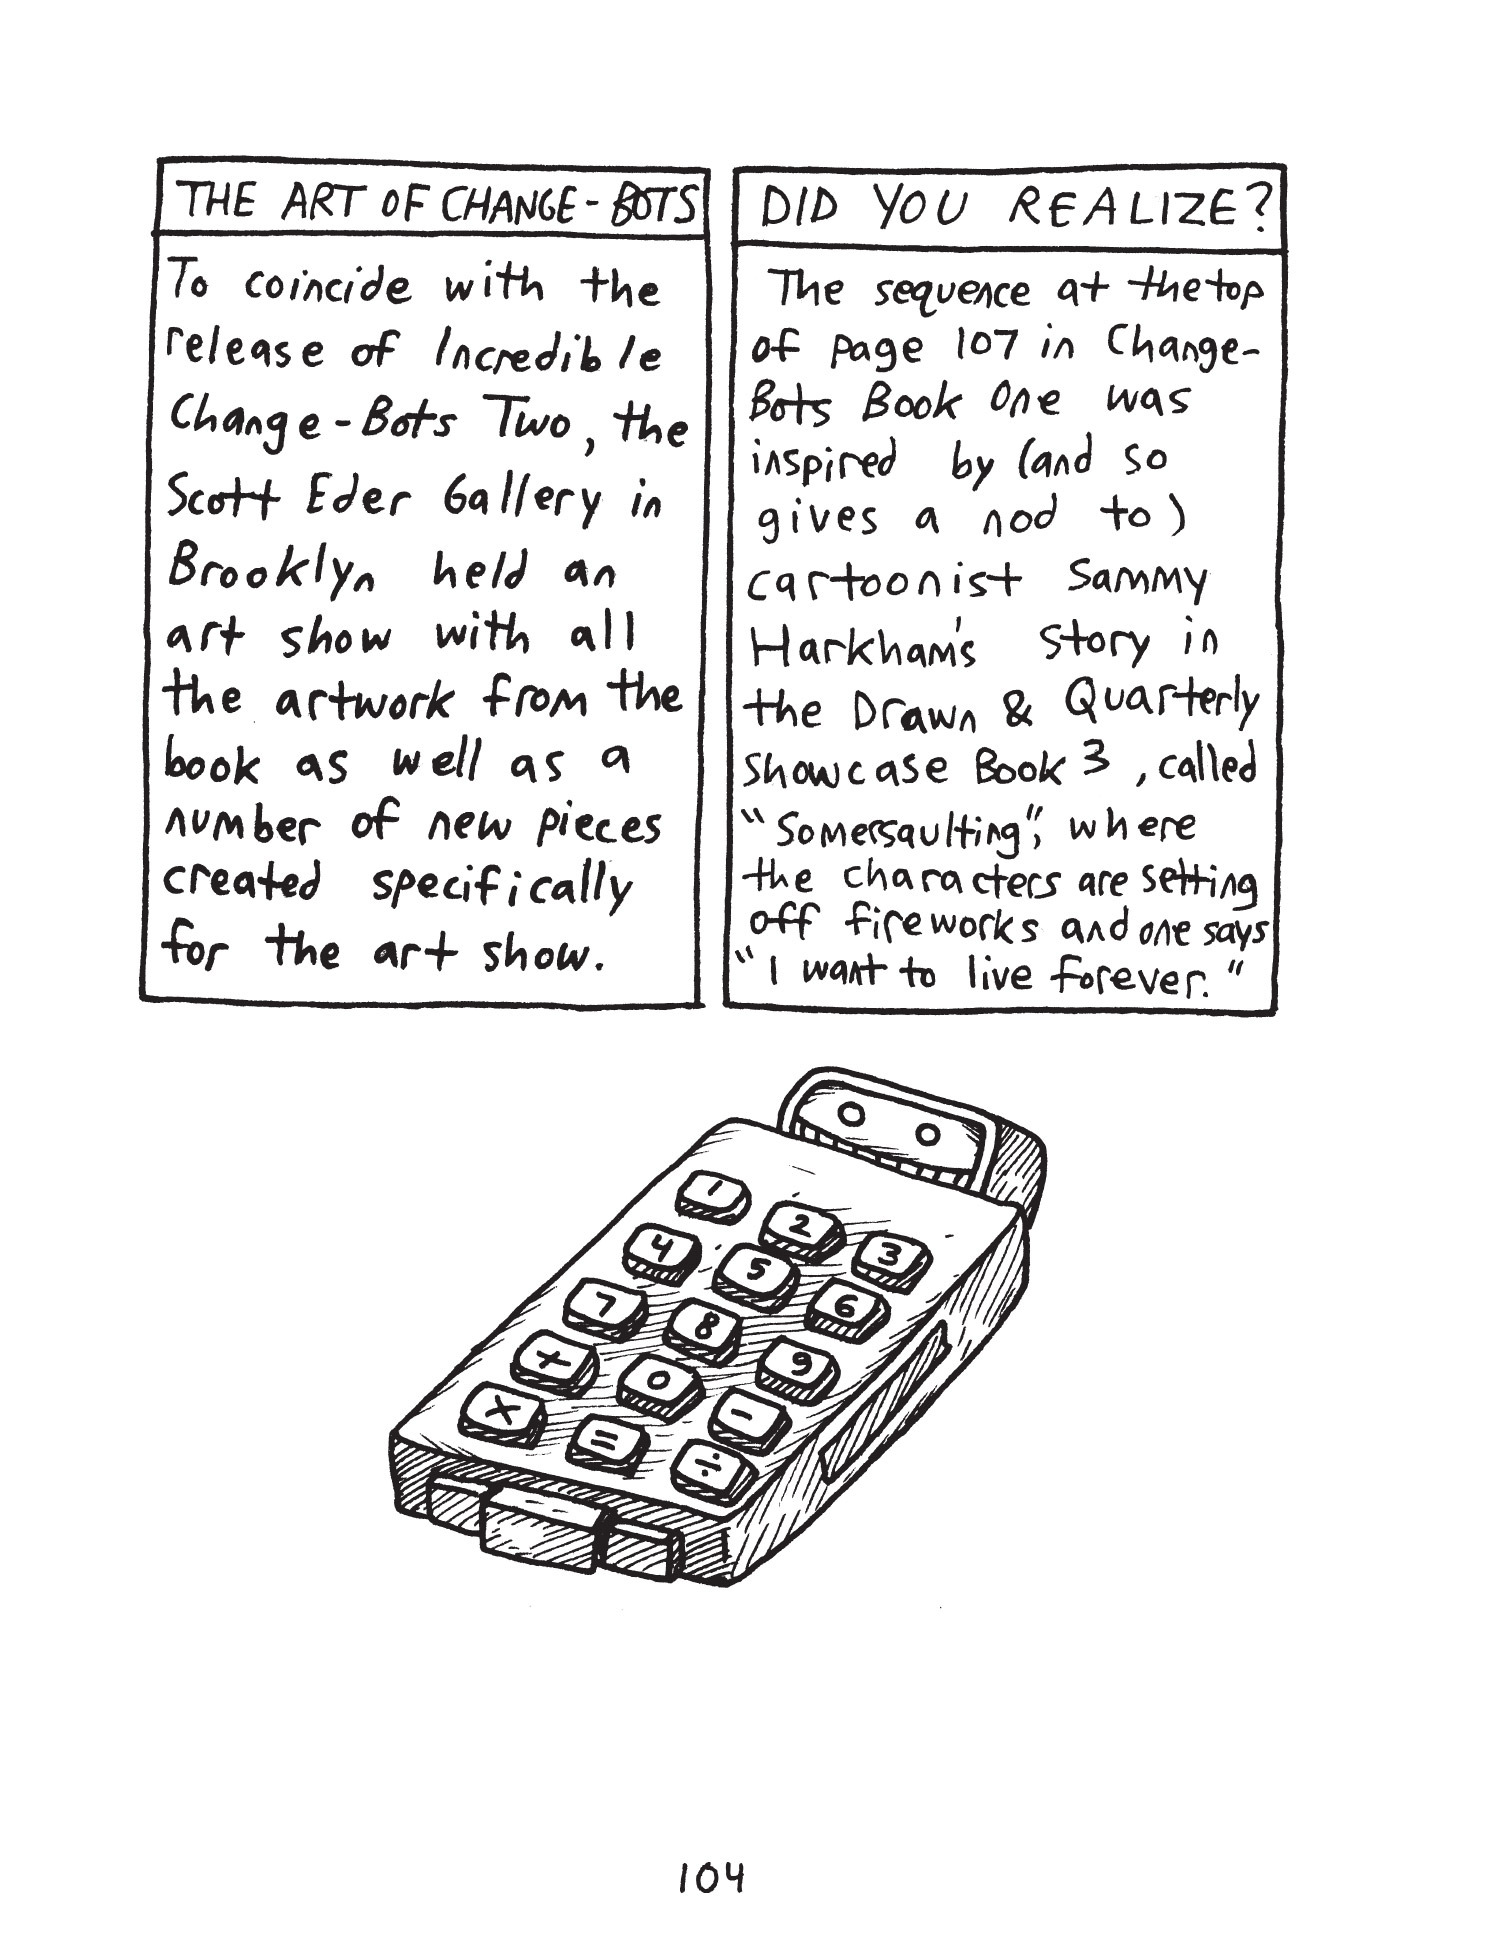 THE ART OF CHANGE-BOTS
To coincide with the
release of Incredible
Change-Bots Two, the
Scott Eder Gallery in
Brooklyn held an
art show with all
the artwork from the
book as well as a
number of new pieces
created specifically
for the art show.
DID YOU REALIZE?
The sequence at the top
of page 107 in Change-
Bots Book One was
inspired by (and so
gives a nod to)
cartoonist Sammy
Harkham's story in
the Drawn & Quarterly
Showcase Book 3, called
"Somersaulting", where
the characters are setting
off fireworks and one says
"I want to live forever."
1 2 3
4 5 6
7 8 9
+ 0 -
× = ÷
104